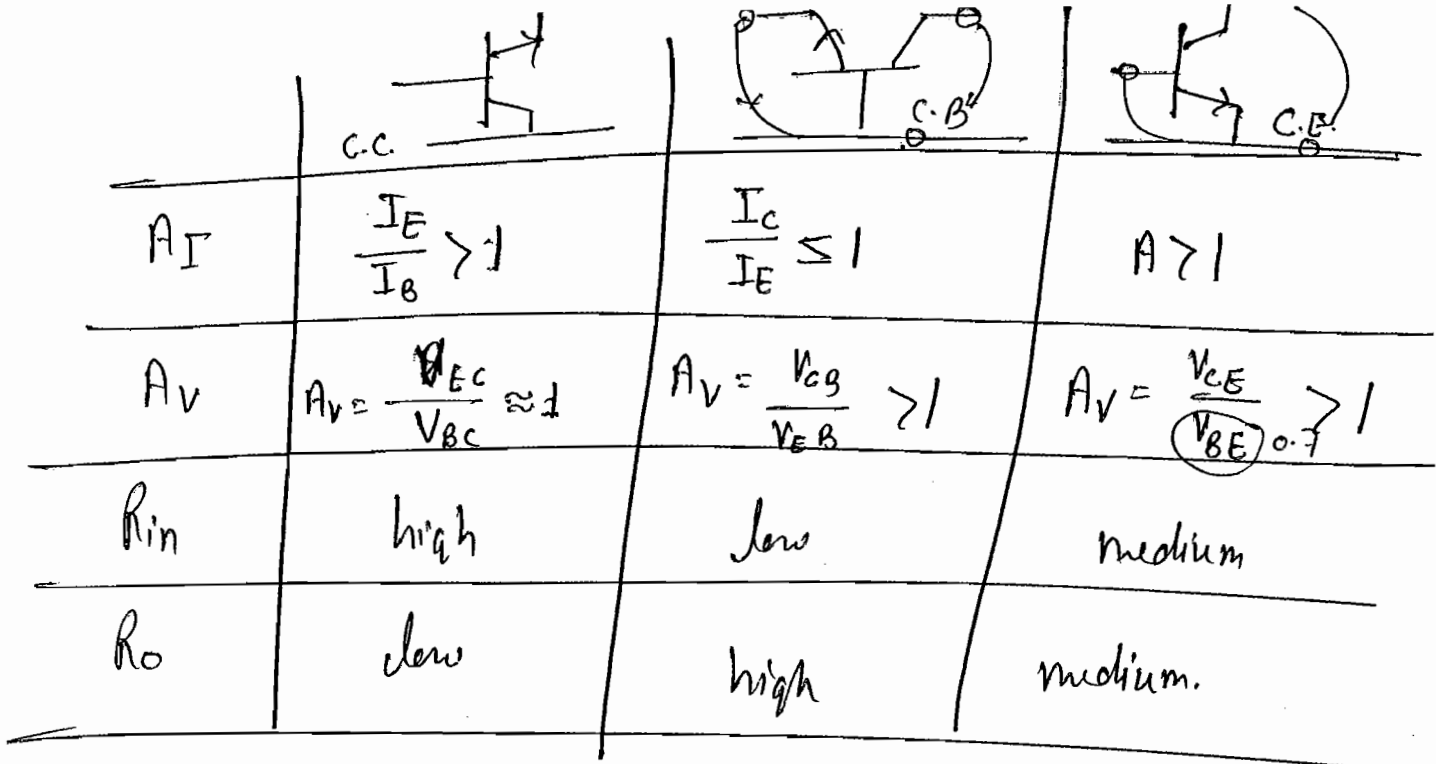 C.C. C.B. C.E.
A_I I_E/I_B > 1 I_C/I_E ≤ 1 A > 1
A_V A_V = V_EC/V_BC ≈ 1 A_V = V_CB/V_EB > 1 A_V = V_CE/V_BE 0.7 > 1
Rin high low medium
Ro low high medium.